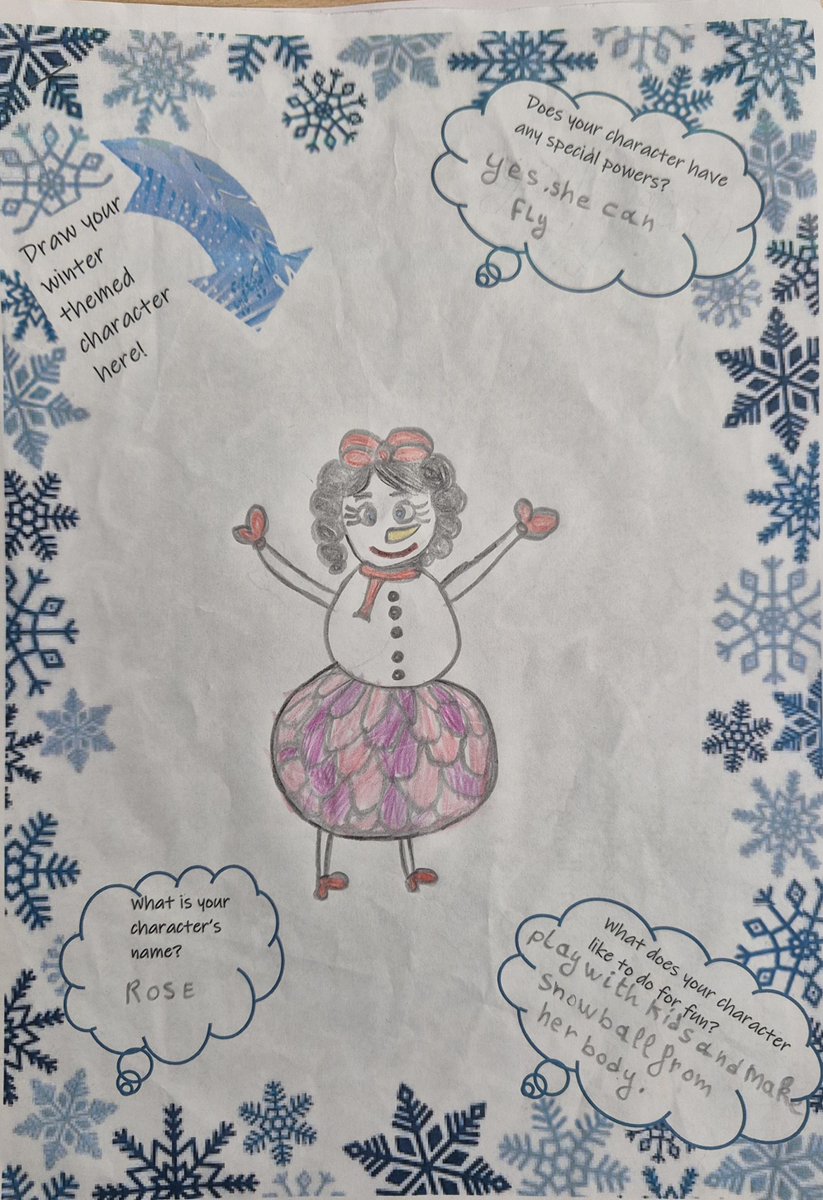 Does your character have
any special powers?
yes, she can
fly
Draw your
winter
themed
character
here!
What is your
character's
name?
ROSE
What does your character
like to do for fun?
play with kids and make
snowball from
her body.